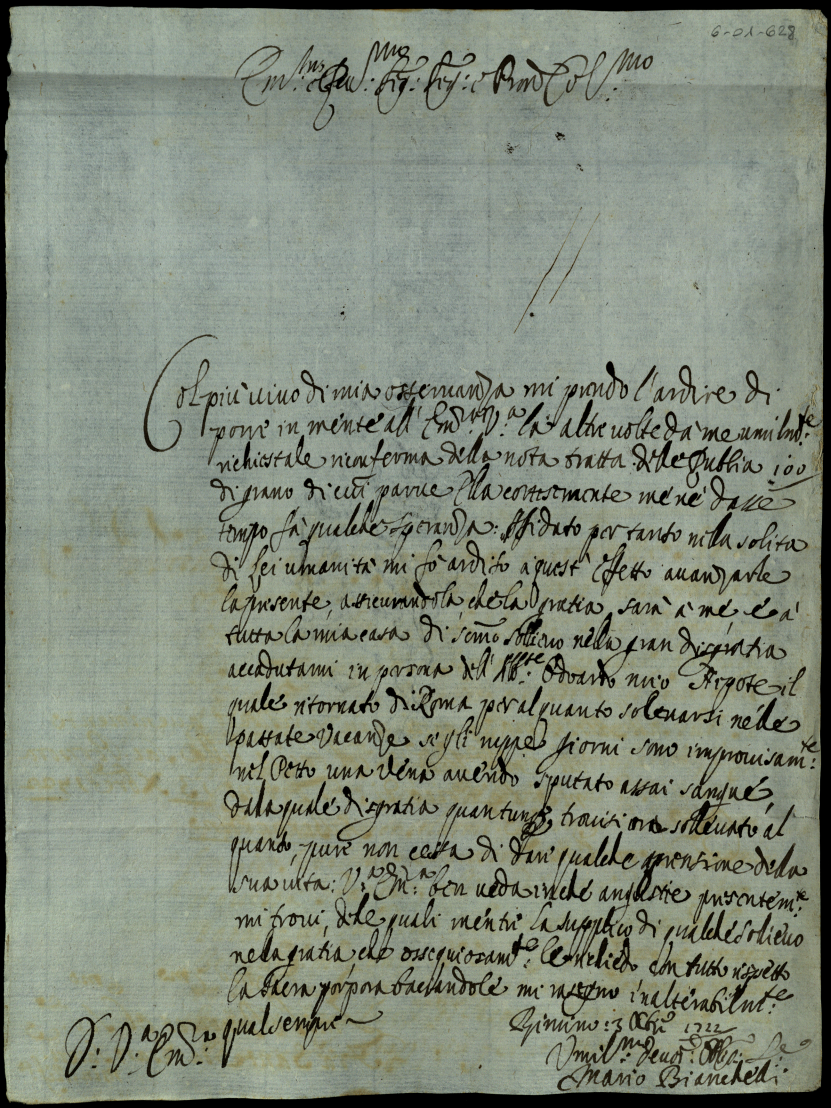 6-01-628
Em.mo e Rev.mo Sig: Sig: e Pron Col.mo
Col più vivo di mia osservanza mi prendo l'ardire di
porre in mente all' Em.za V.a la altre volte da me umilm.te
richiestale riconferma della nota tratta delle Publia 100
di grano di cui parve Ella cortesemente me ne dasse
tempo fà qualche speranza: Affidato per tanto nella solita
di Lei umanità mi fò ardito a quest' effetto avanzarle
la presente, assicurandola, che la gratia sarà a me, e a
tutta la mia casa di sommo sollievo nella gran disgratia
accadutami in persona dell' Abb.te Odoardo mio Nipote il
quale ritornato di Roma per alquanto solevarsi nelle
passate Vacanze segli ruppe giorni sono improvisam.te
nel Petto una Vena avendo sputato assai sangue,
dala quale disgratia quantunq trovisi ora sollevato al
quanto, pure non cessa di dar qualche aprensione della
sua vita: V.a Em.za ben veda in che angustie presentem.te
mi trovi, dele quali mentre la supplico di qualche sollievo
nella gratia che ossequiosam.te le richiedo con tutto rispetto
la sacra porpora baciandole mi rasegno inalterabilm.te
qual sempre
D: V.a Em.za
Rimino: 3 Xbre 1722
Umil.mo Devot.mo Obbl. Se.
Mario Bianchedi